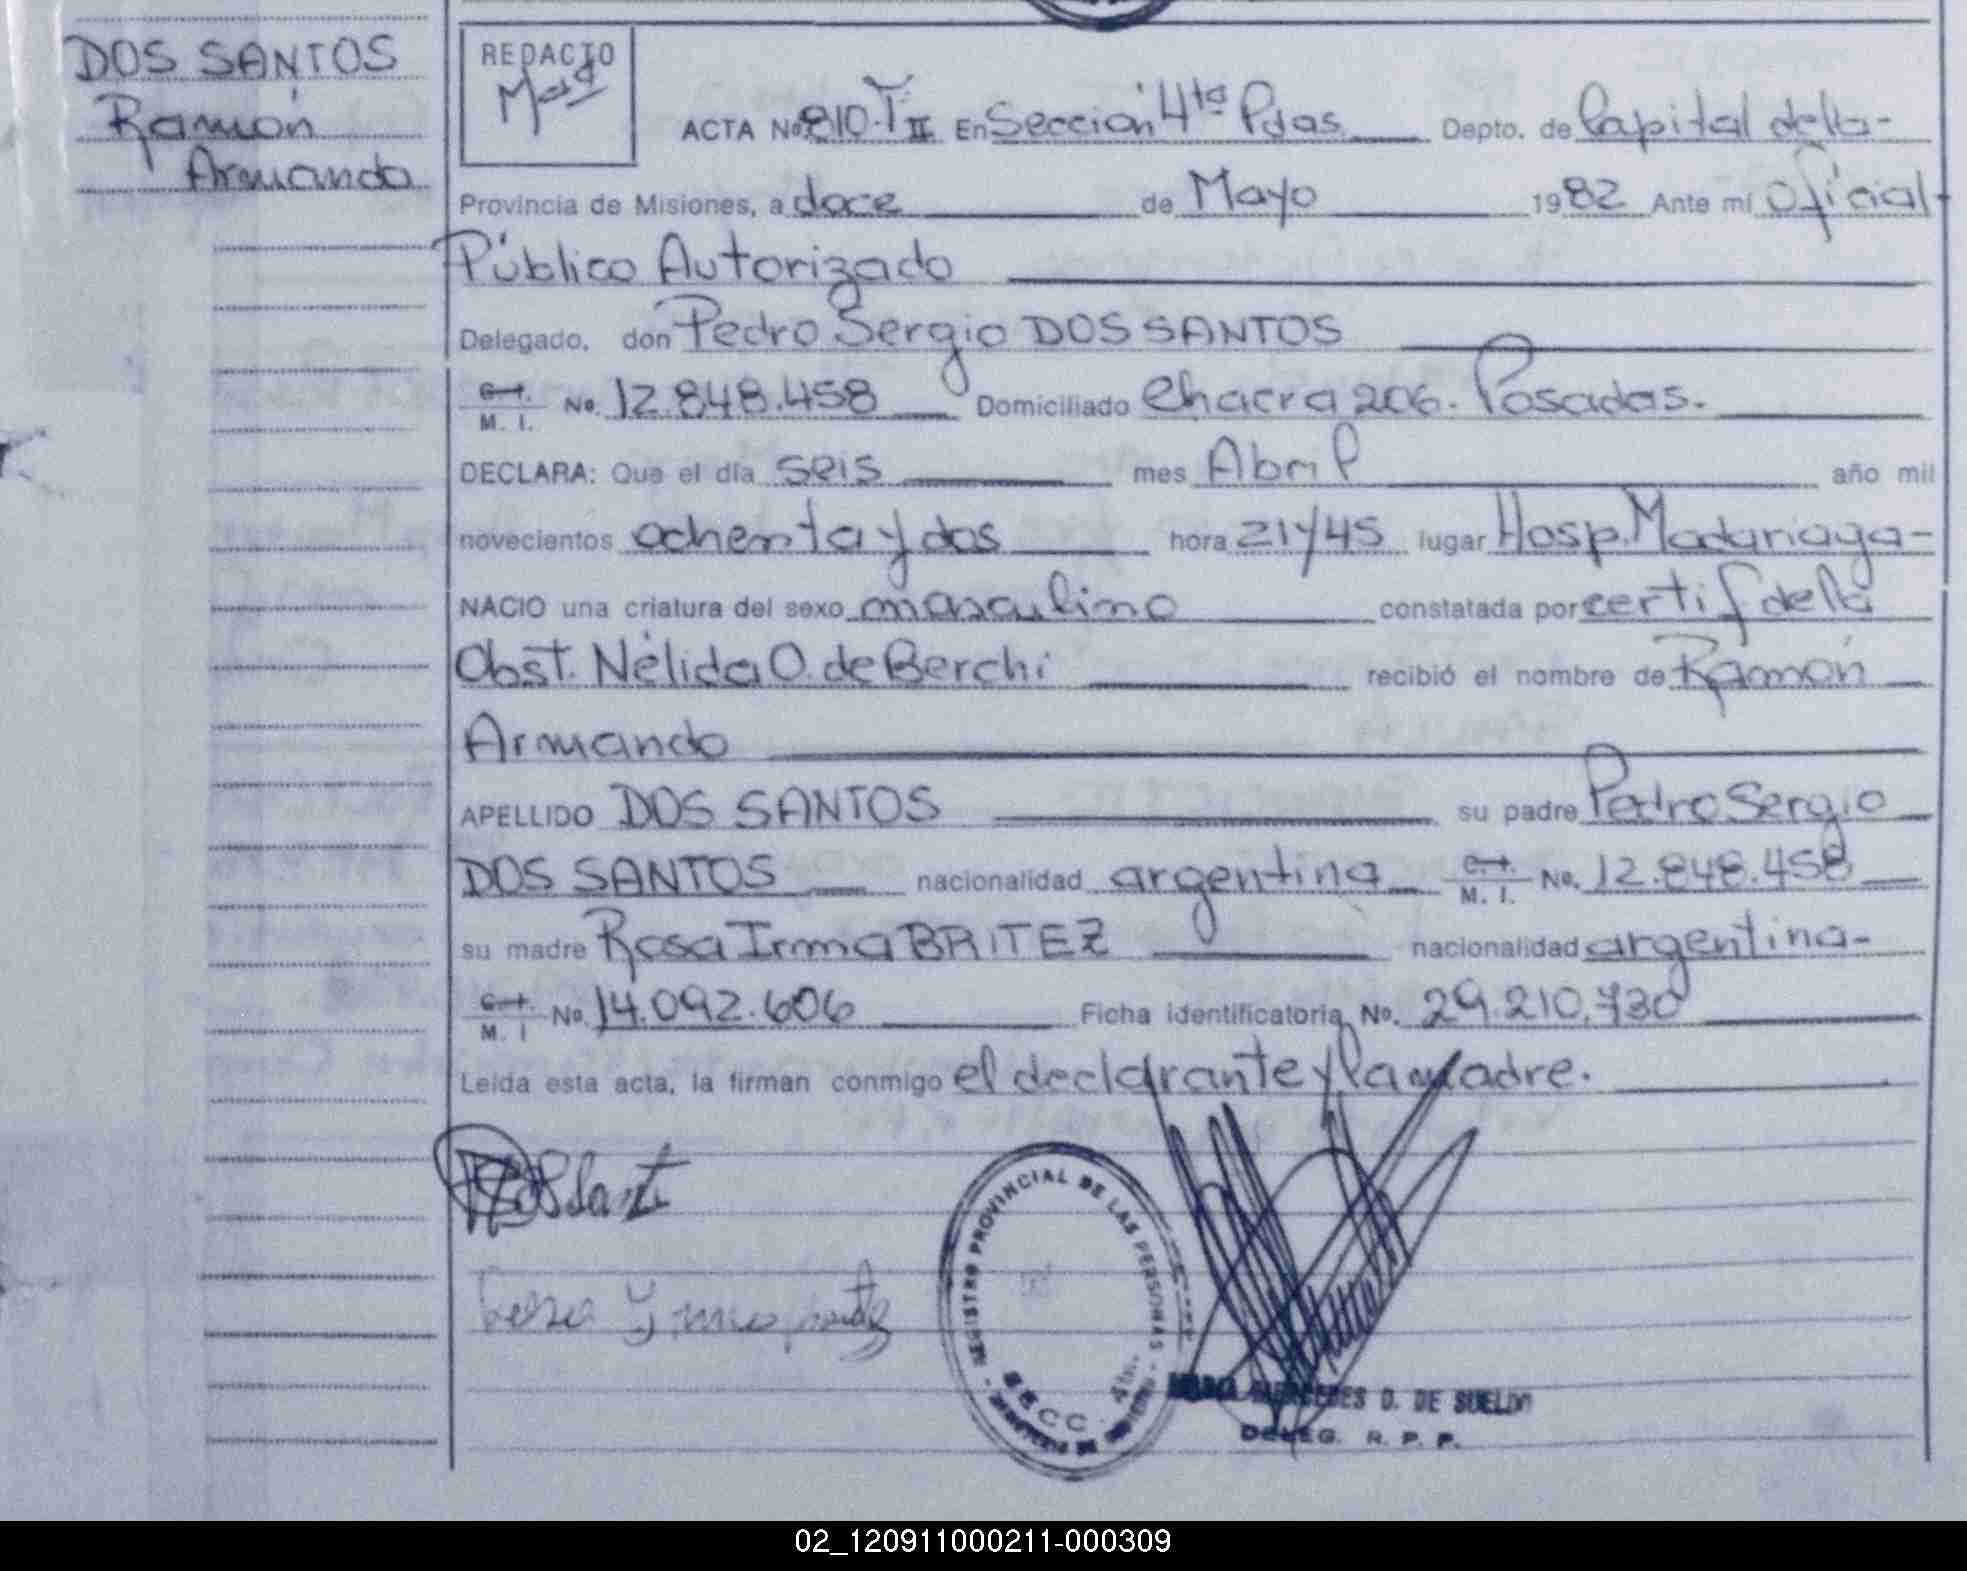 DOS SANTOS
Ramón
Armando
REDACTO
ACTA No 810.T II En Sección 4ta Pdas. Depto. de Capital de la-
Provincia de Misiones, a doce de Mayo 1982 Ante mí Oficial-
Público Autorizado
Delegado, don Pedro Sergio DOS SANTOS
C.I. M. I. No. 12.848.458 Domiciliado Chacra 206. Posadas.
DECLARA: Que el día seis mes Abril año mil
novecientos ochenta y dos hora 21y45 lugar Hosp. Madariaga-
NACIO una criatura del sexo masculino constatada por certif de la
Obst. Nélida O. de Berchi recibió el nombre de Ramón
Armando
APELLIDO DOS SANTOS su padre Pedro Sergio
DOS SANTOS nacionalidad argentina C.I. M. I. No. 12.848.458
su madre Rosa Irma BRITEZ nacionalidad argentina-
C.I. M. I No. 14.092.606 Ficha identificatoria No. 29.210.730
Leída esta acta, la firman conmigo el declarante y la madre.
REGISTRO PROVINCIAL DE LAS PERSONAS
SECC. 4ta.
MERCEDES D. DE SUELDO
DELEG. R. P. P.
02_120911000211-000309